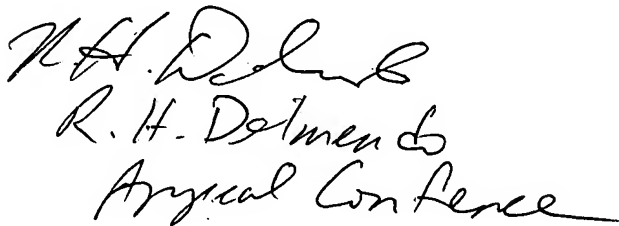 R. H. Delmendo
R. H. Delmendo
Appeal Conferee